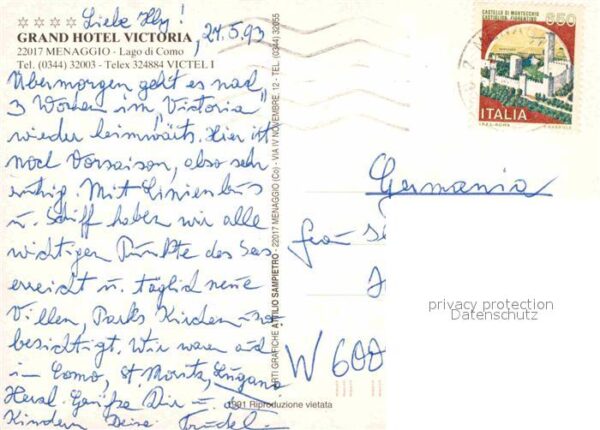 Liebe Illy!
GRAND HOTEL VICTORIA
24.5.93
22017 MENAGGIO - Lago di Como
Tel. (0344) 32003 - Telex 324884 VICTEL I
Übermorgen geht es nach
3 Wochen im "Victoria"
wieder heimwärts. Hier ist
noch Vorsaison, also sehr
ruhig. Mit Linienbus
u. Schiff haben wir alle
wichtigen Punkte des Sees
erreicht u. täglich neue
Villen, Parks Kirchen usw
besichtigt. Wir waren auch
in Como, St Moritz, Lugano
Herzl. Grüße Dir
Kindern Deine Trudel.
ARTI GRAFICHE ATTILIO SAMPIETRO - 22017 MENAGGIO (Co) - VIA IV NOVEMBRE, 12 - TEL. (0344) 32655
1991 Riproduzione vietata
CASTELLO DI MONTECCHIO
CASTIGLION FIORENTINO
650
ITALIA
I.P.Z.S. ROMA
Germania
Frau
W 600
privacy protection
Datenschutz